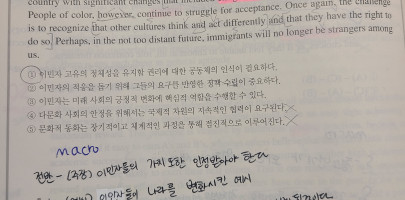 country with significant changes that
People of color, however, continue to struggle for acceptance. Once again, the challenge
is to recognize that other cultures think and act differently and that they have the right to
do so. Perhaps, in the not too distant future, immigrants will no longer be strangers among
us.
① 이민자 고유의 정체성을 유지할 권리에 대한 공동체의 인식이 필요하다.
② 이민자의 적응을 돕기 위해 그들의 요구를 반영한 정책 수립이 중요하다.
③ 이민자는 미래 사회의 긍정적 변화에 핵심적 역할을 수행할 수 있다.
④ 다문화 사회의 안정을 위해서는 국제적 차원의 지속적인 협력이 요구된다.
⑤ 문화적 동화는 장기적이고 체계적인 과정을 통해 점진적으로 이루어진다.
macro
전반 - (주장) 이민자들의 가치 또한 인정받아야 한다
이민자들이 나라를 변화시킨 예시